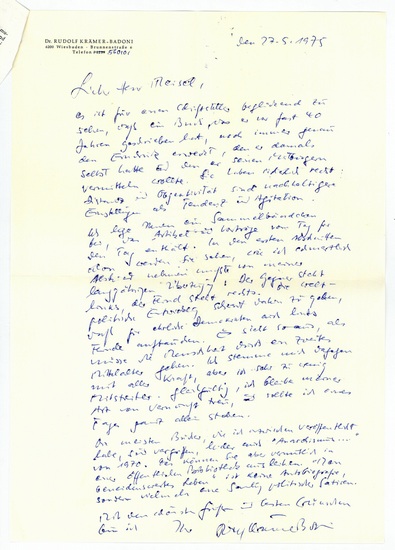 Dr. RUDOLF KRÄMER-BADONI
6200 Wiesbaden - Brunnenstraße 6
Telefon 540101
den 27.5.1975
Lieber Herr Meisel,
es ist für einen Schriftsteller beglückend zu
sehen, daß ein Buch, das er vor fast 40
Jahren geschrieben hat, noch immer genau
den Eindruck erweckt, den er damals
selbst hatte und den er seinen Mitbürgern
vermitteln wollte. Sie haben sicherlich recht:
Distanz und Objektivität sind nachhaltigere
als Tendenz und Agitation.
Ich lege Ihnen ein Sammelbändchen
bei, das Artikel und Vorträge von Tag für
den Tag enthält. In den ersten Abschnitten
werden Sie sehen, wie ich
Abschied nehmen mußte von meiner
langjährigen Überzeugung: Der Gegner steht
links, der Feind steht rechts. Die
politische Entwicklung scheint dahin zu gehen,
daß für ehrliche Demokraten auch links
Feinde auftauchen. Es sieht so aus, als
müsse die Menschheit durch ein zweites
Mittelalter gehen. Ich stemme mich dagegen
mit aller Kraft, aber ich sehe zu wenig
Mitstreiter. Gleichgültig, ich bleibe meiner
Art von Vernunft treu, und sollte ich eines
Tages damit allein stehen.
Die meisten Bücher, die ich inzwischen veröffentlicht
habe, sind vergriffen, leider auch "Anarchismus..."
von 1970. Den können Sie aber vermutlich in
einer öffentlichen Bibliothek ausleihen. "Mein
beneidenswertes Leben" ist keine Autobiografie,
sondern vielmehr eine politische Satire.
Mit den schönsten Grüßen und besten Wünschen
bin ich Ihr Rudolf Krämer-Badoni